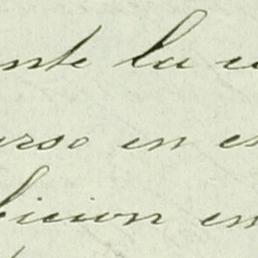 nte la
urso en es
bicion en